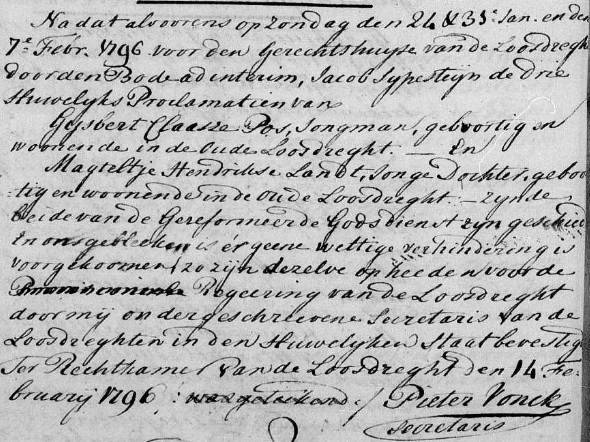 Nadat alvoorens op zondag den 24 & 31e Jan. en den
7e Febr. 1796 voor den Gerechtshuyse van de Loosdregh
door den Bode ad interim, Jacob Sypesteijn de drie
Huwelyks Proclamatien van
Gijsbert Claasze Pos, Jongman, gebortig en
woonende in de Oude Loosdreght. — En
Magteltje Hendrikse Landt, Jonge Dochter, geboor
tig en woonende in de oude Loosdreght — zynde
beide van de Gereformeerde Godsdienst zyn geschied
En ons gebleeken is er geene wettige verhindering is
voorgekoomen, zo zijn dezelve op heeden voor de
Regeering van de Loosdreght
door mij ondergeschreevene Secretaris van de
Loosdreghten in den Huwelyken Staat bevestig
Ter Rechtkamer van de Loosdreght den 14 Fe-
bruarij 1796. was getekend. / Pieter Vonck
Secretaris